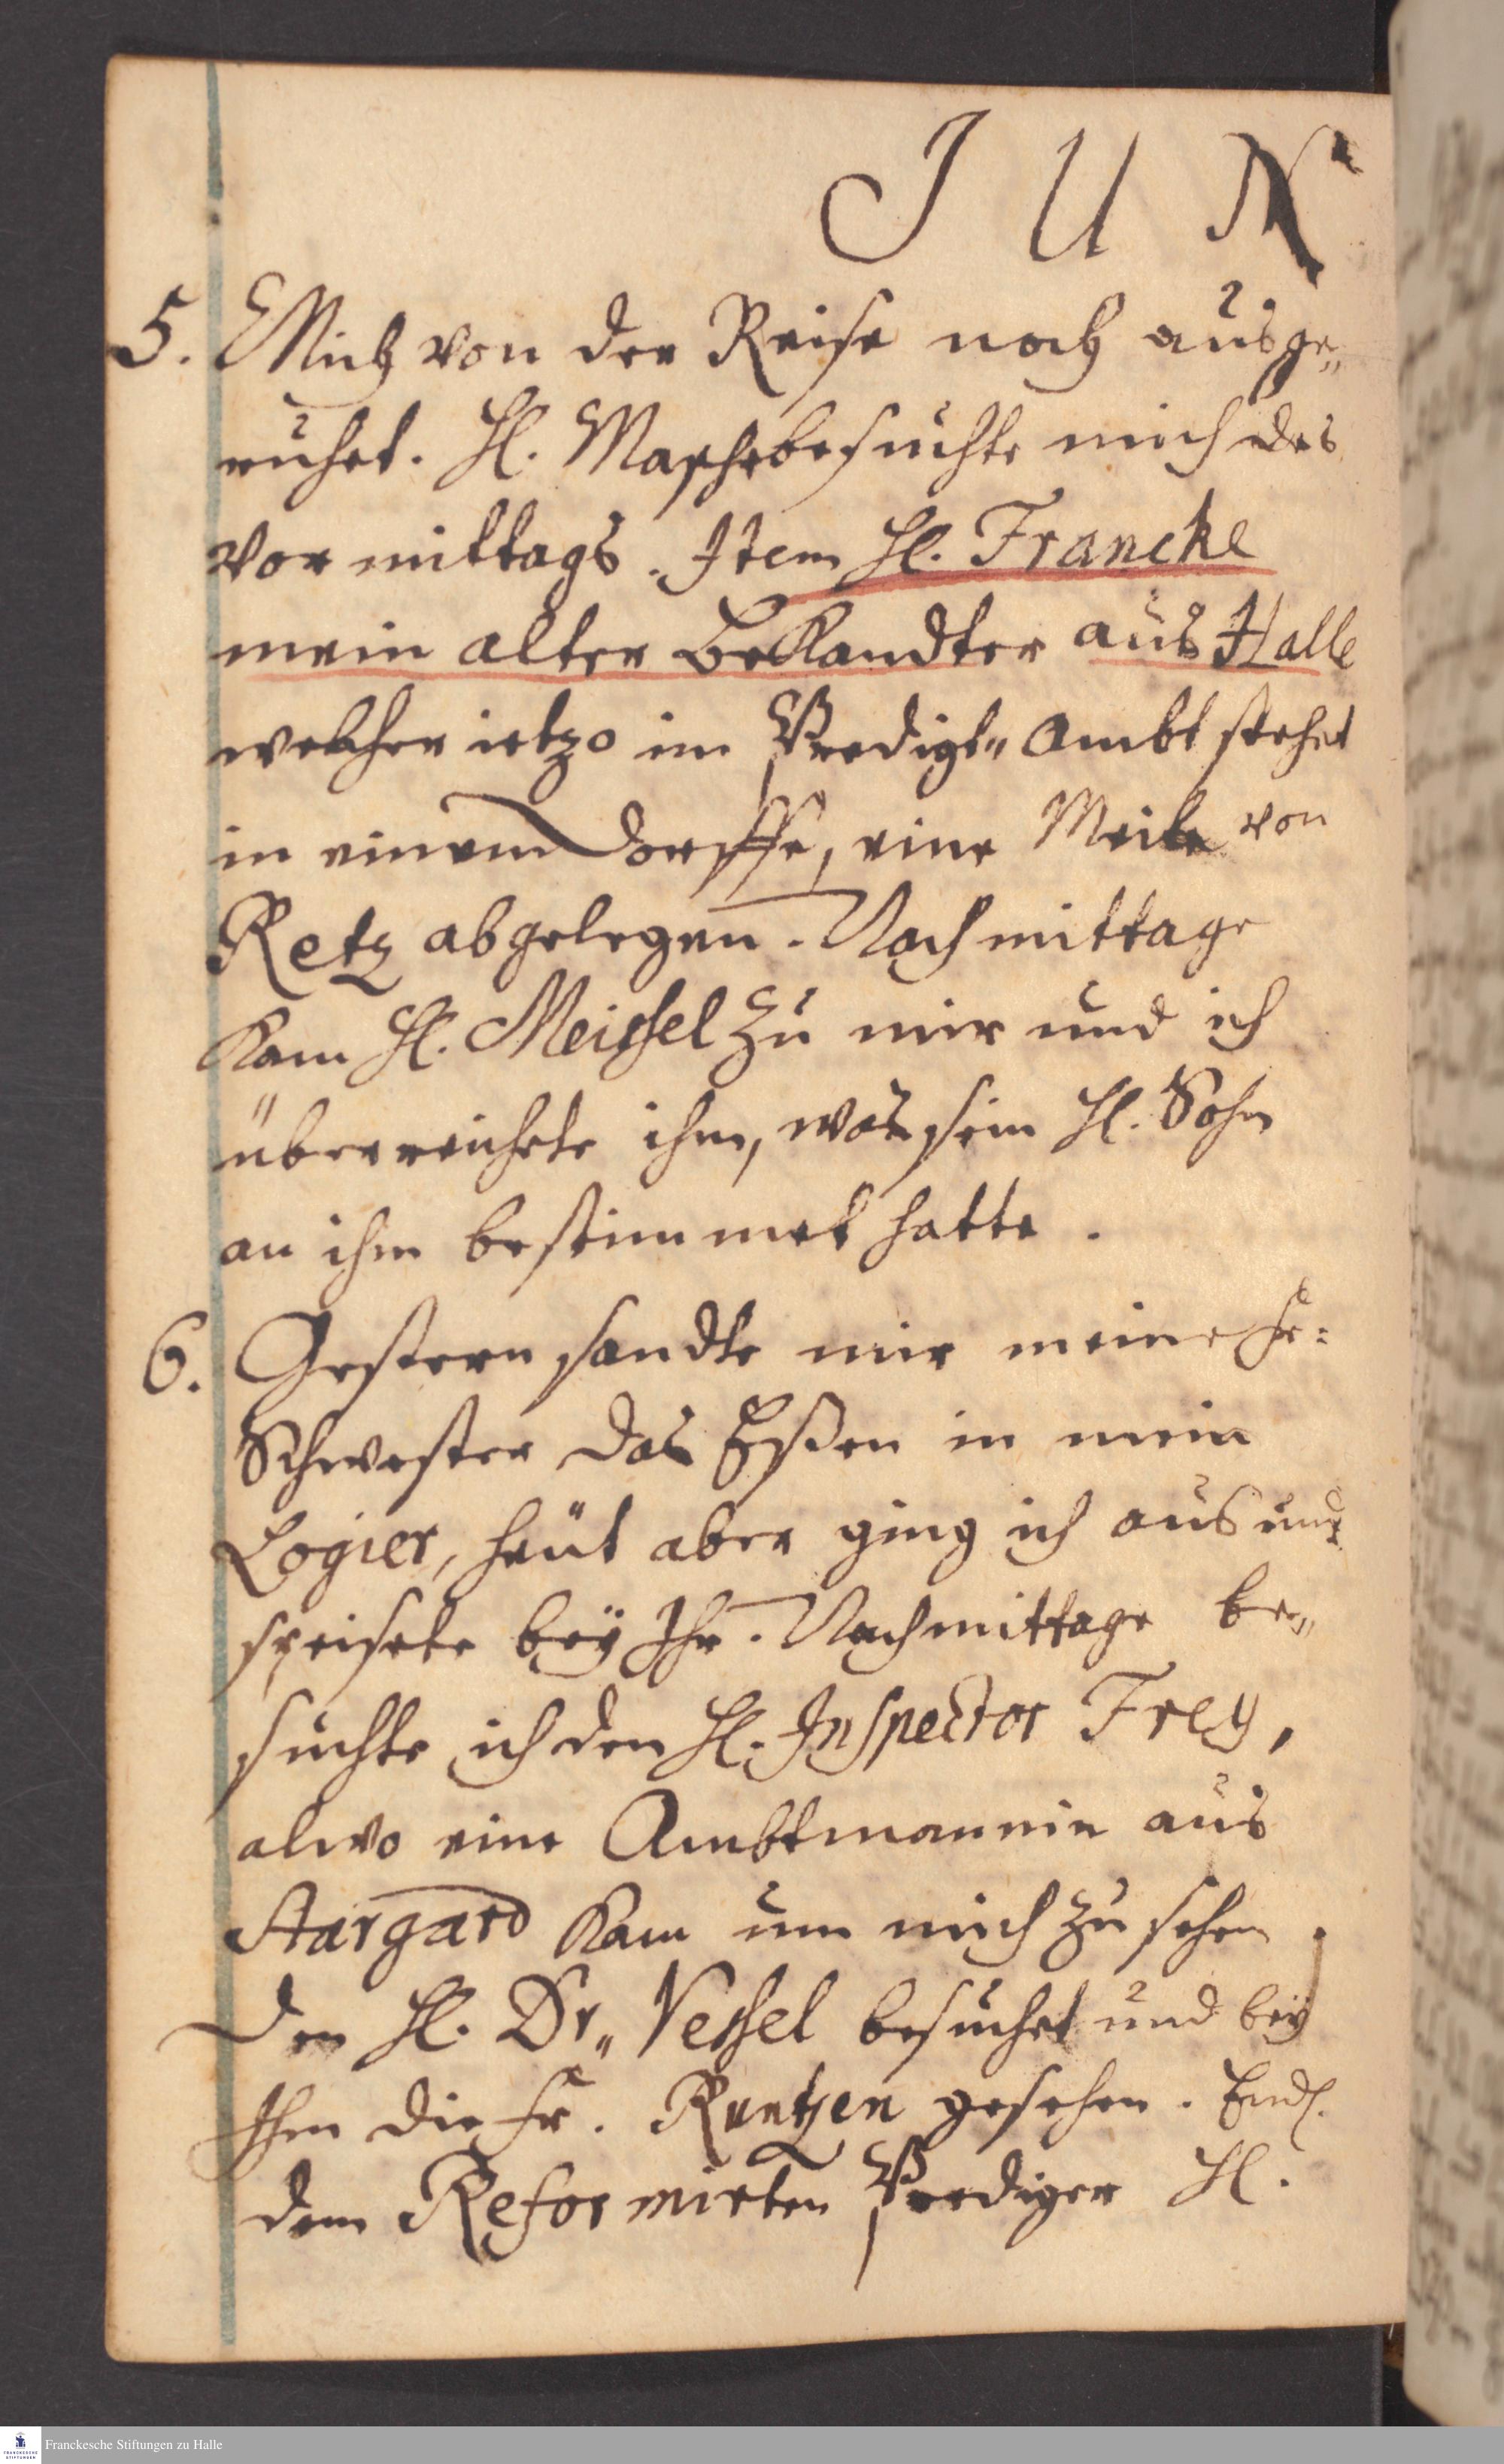 JUN
5. Mich von der Reise noch ausge„
ruhet. H. Masche besuchte mich des
vormittags. Item H. Francke
mein alter bekandter aus Halle
welcher ietzo im Predigt„ Ambt stehet
in einem Dorffe, eine Meile von
Retz abgelegen. Nachmittage
kam H. Meissel zu mir und ich
überreichte ihm, was sein H. Sohn
an ihm bestimmet hatte.
6. Gestern sandte mir meine Fr:
Schwester das Eßen in mein
Logier, heüt aber ging ich aus und
speisete beÿ Ihr. Nachmittage be„
suchte ich den H. Inspector Frey,
alwo eine Ambtmannin aus
Stargard kam um mich zu sehen.
Den H. Dr„ Vessel besuchet und beÿ
Ihm die Fr. Runtzen gesehen. Endl.
dem Reformirten Prediger H.
Franckesche Stiftungen zu Halle
FRANCKESCHE STIFTUNGEN